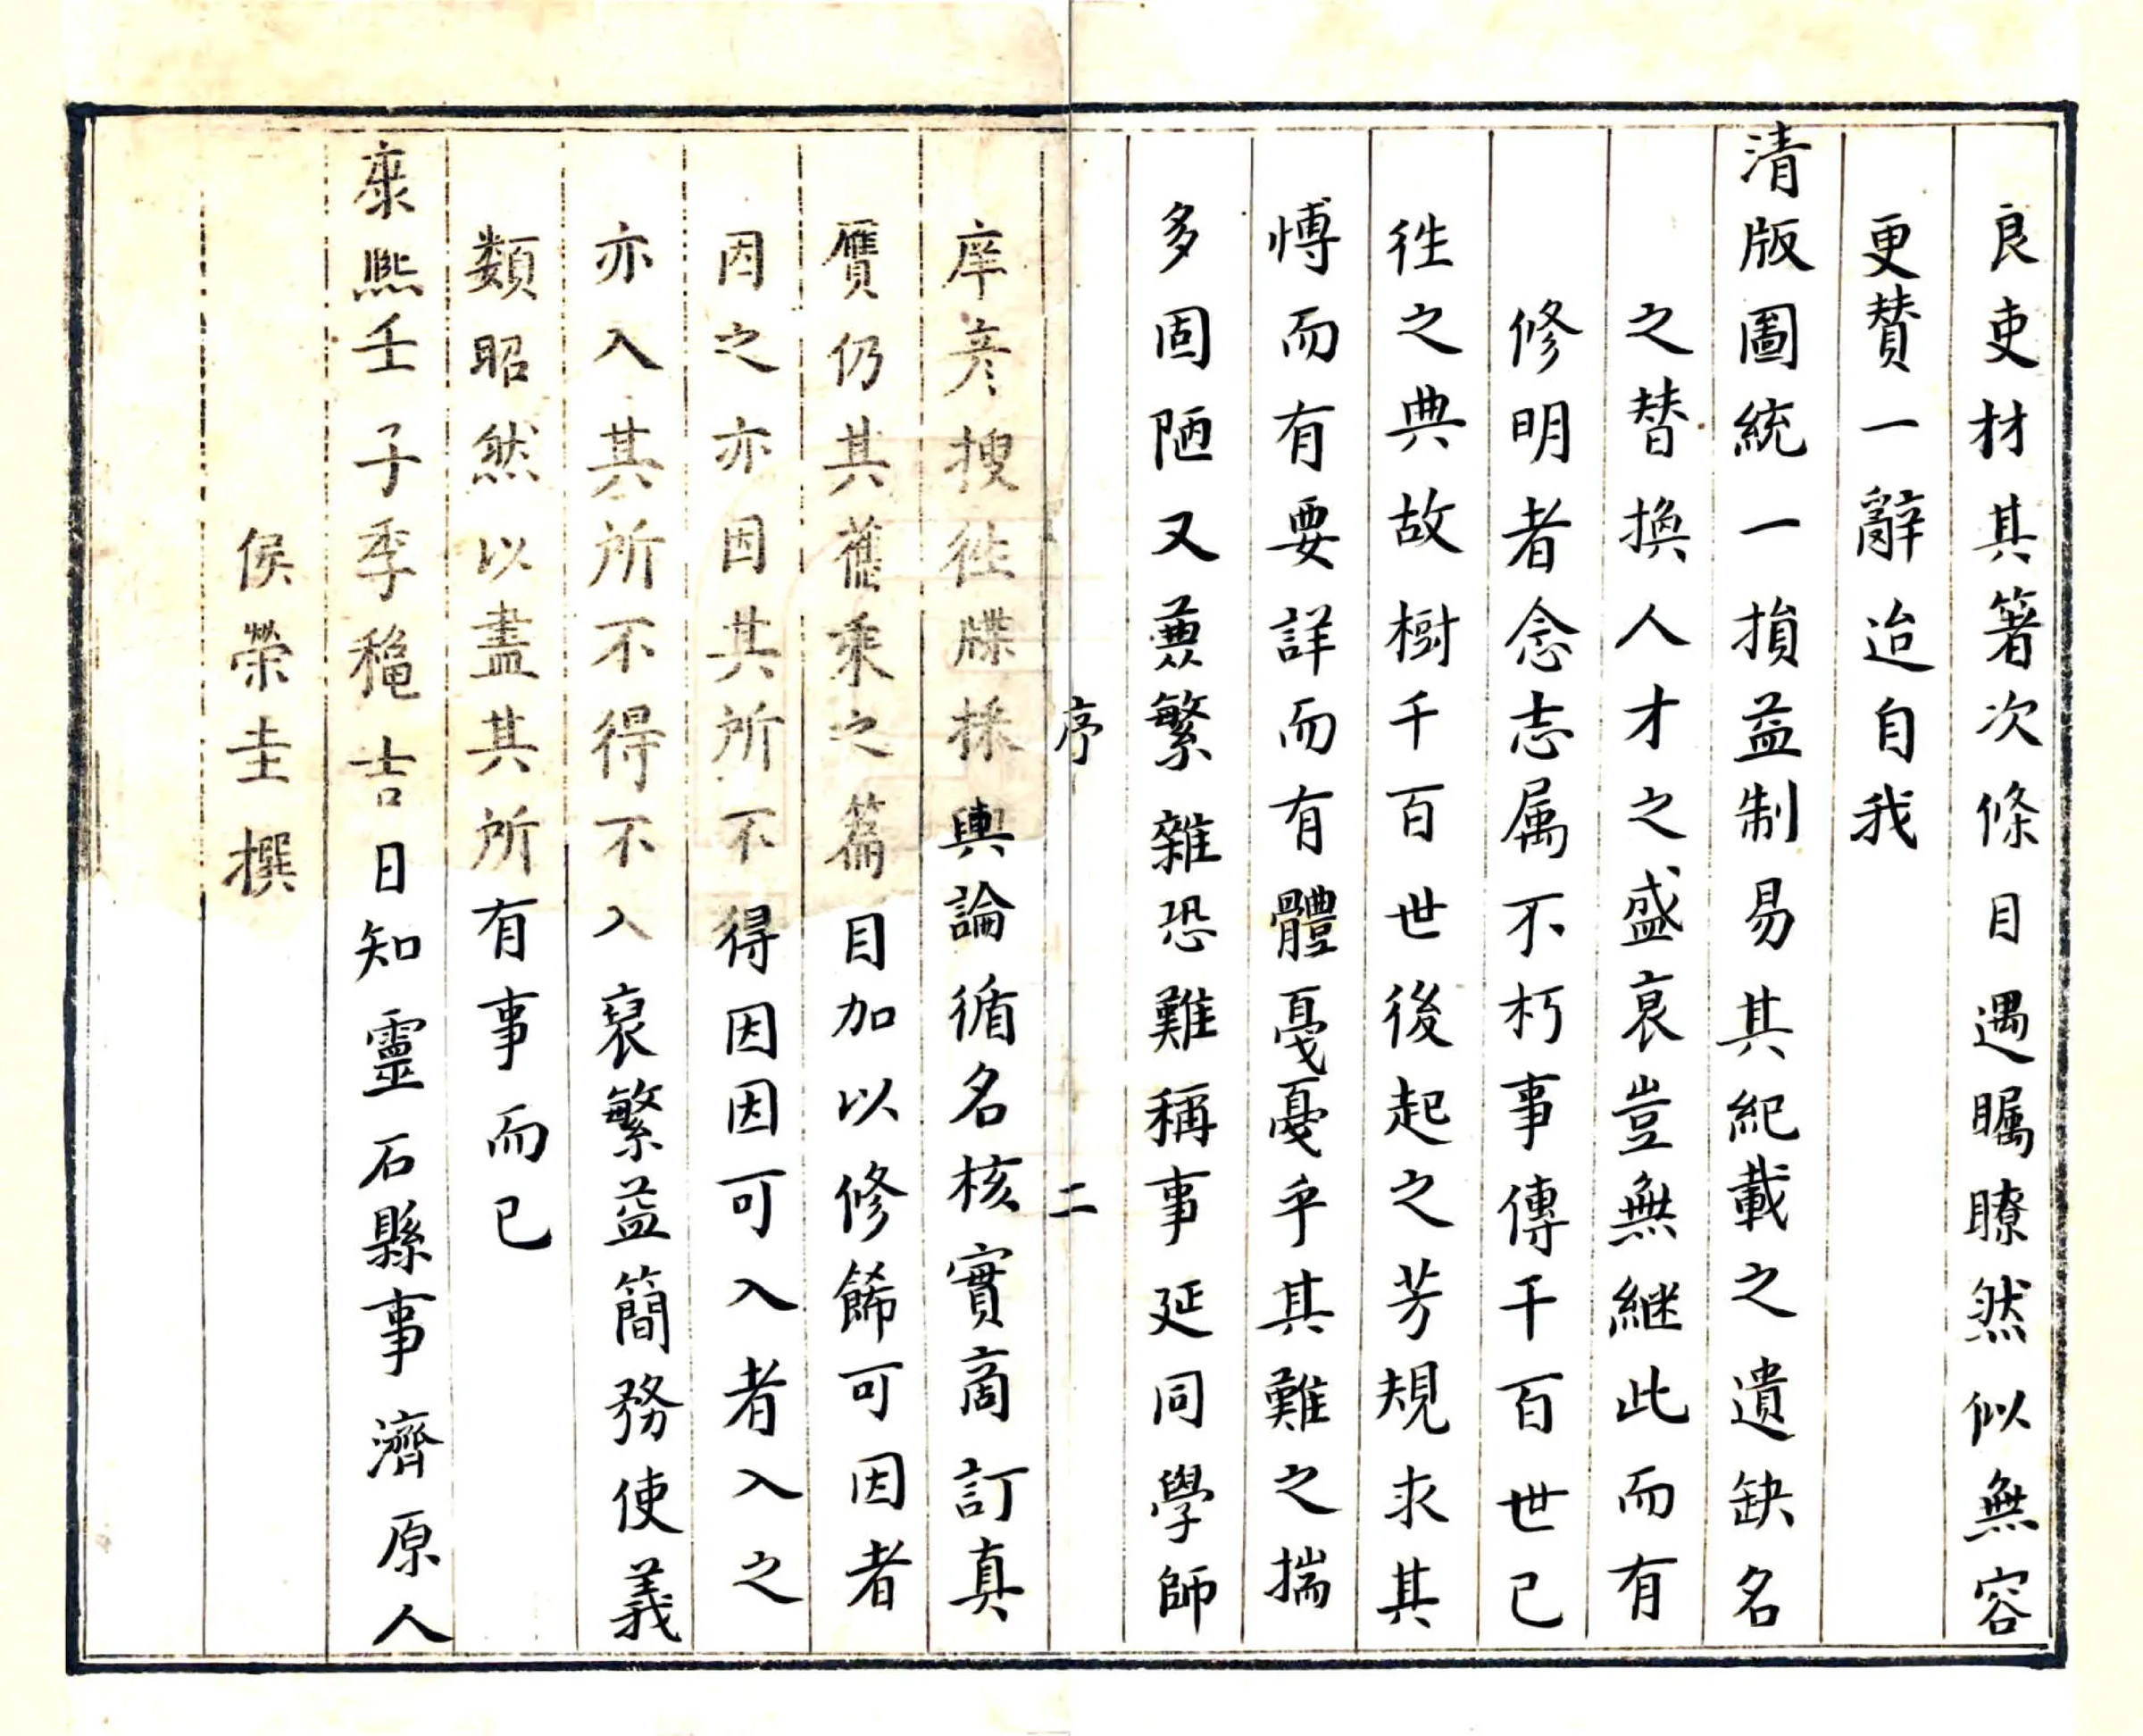 良吏材其箸次條目遇矚瞭然似無容
更賛一辭迨自我
清版圖統一損益制易其紀載之遺缺名
之替換人才之盛衰豈無継此而有
修明者念志属不朽事傳千百世已
徃之典故樹千百世後起之芳規求其
愽而有要詳而有體戞憂乎其難之揣
多固陋又蒉繁雜恐難稱事延同學師
序 二
庠彦搜徃牒採輿論循名核實商訂真
贋仍其舊乘之篇目加以修餙可因者
因之亦因其所不得因因可入者入之
亦入其所不得不入裒繁益簡務使義
類昭然以盡其所有事而已
康熙壬子季穐吉日知靈石縣事濟原人
侯榮圭撰